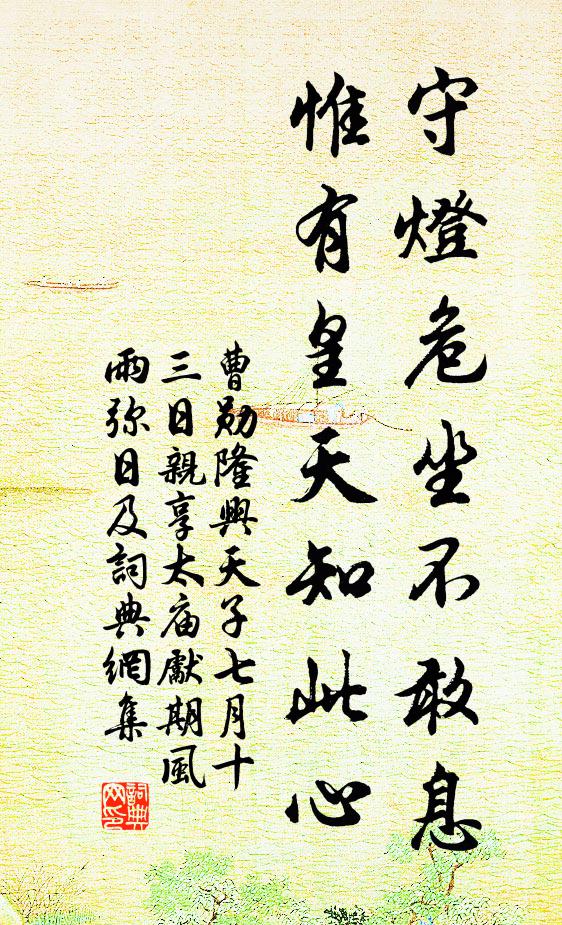 守燈危坐不敢息
惟有皇天知此心
曹勛隆興天子七月十
三日親享太廟獻期風
雨弥日及詞典網集
詞典
网印